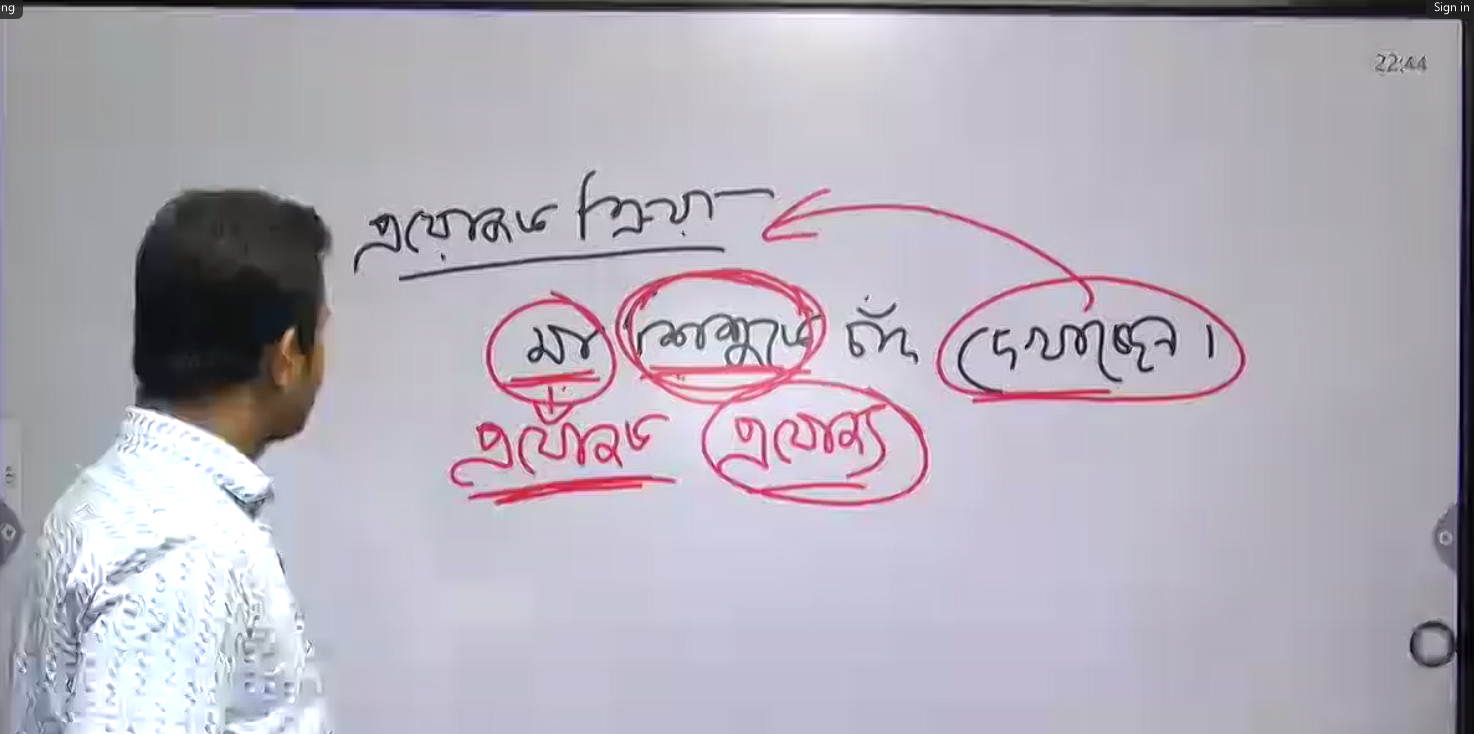 ng
Sign in
22:44
প্রযোজক ক্রিয়া—
মা শিশুকে চাঁদ দেখাচ্ছেন।
প্রযোজক প্রযোজ্য